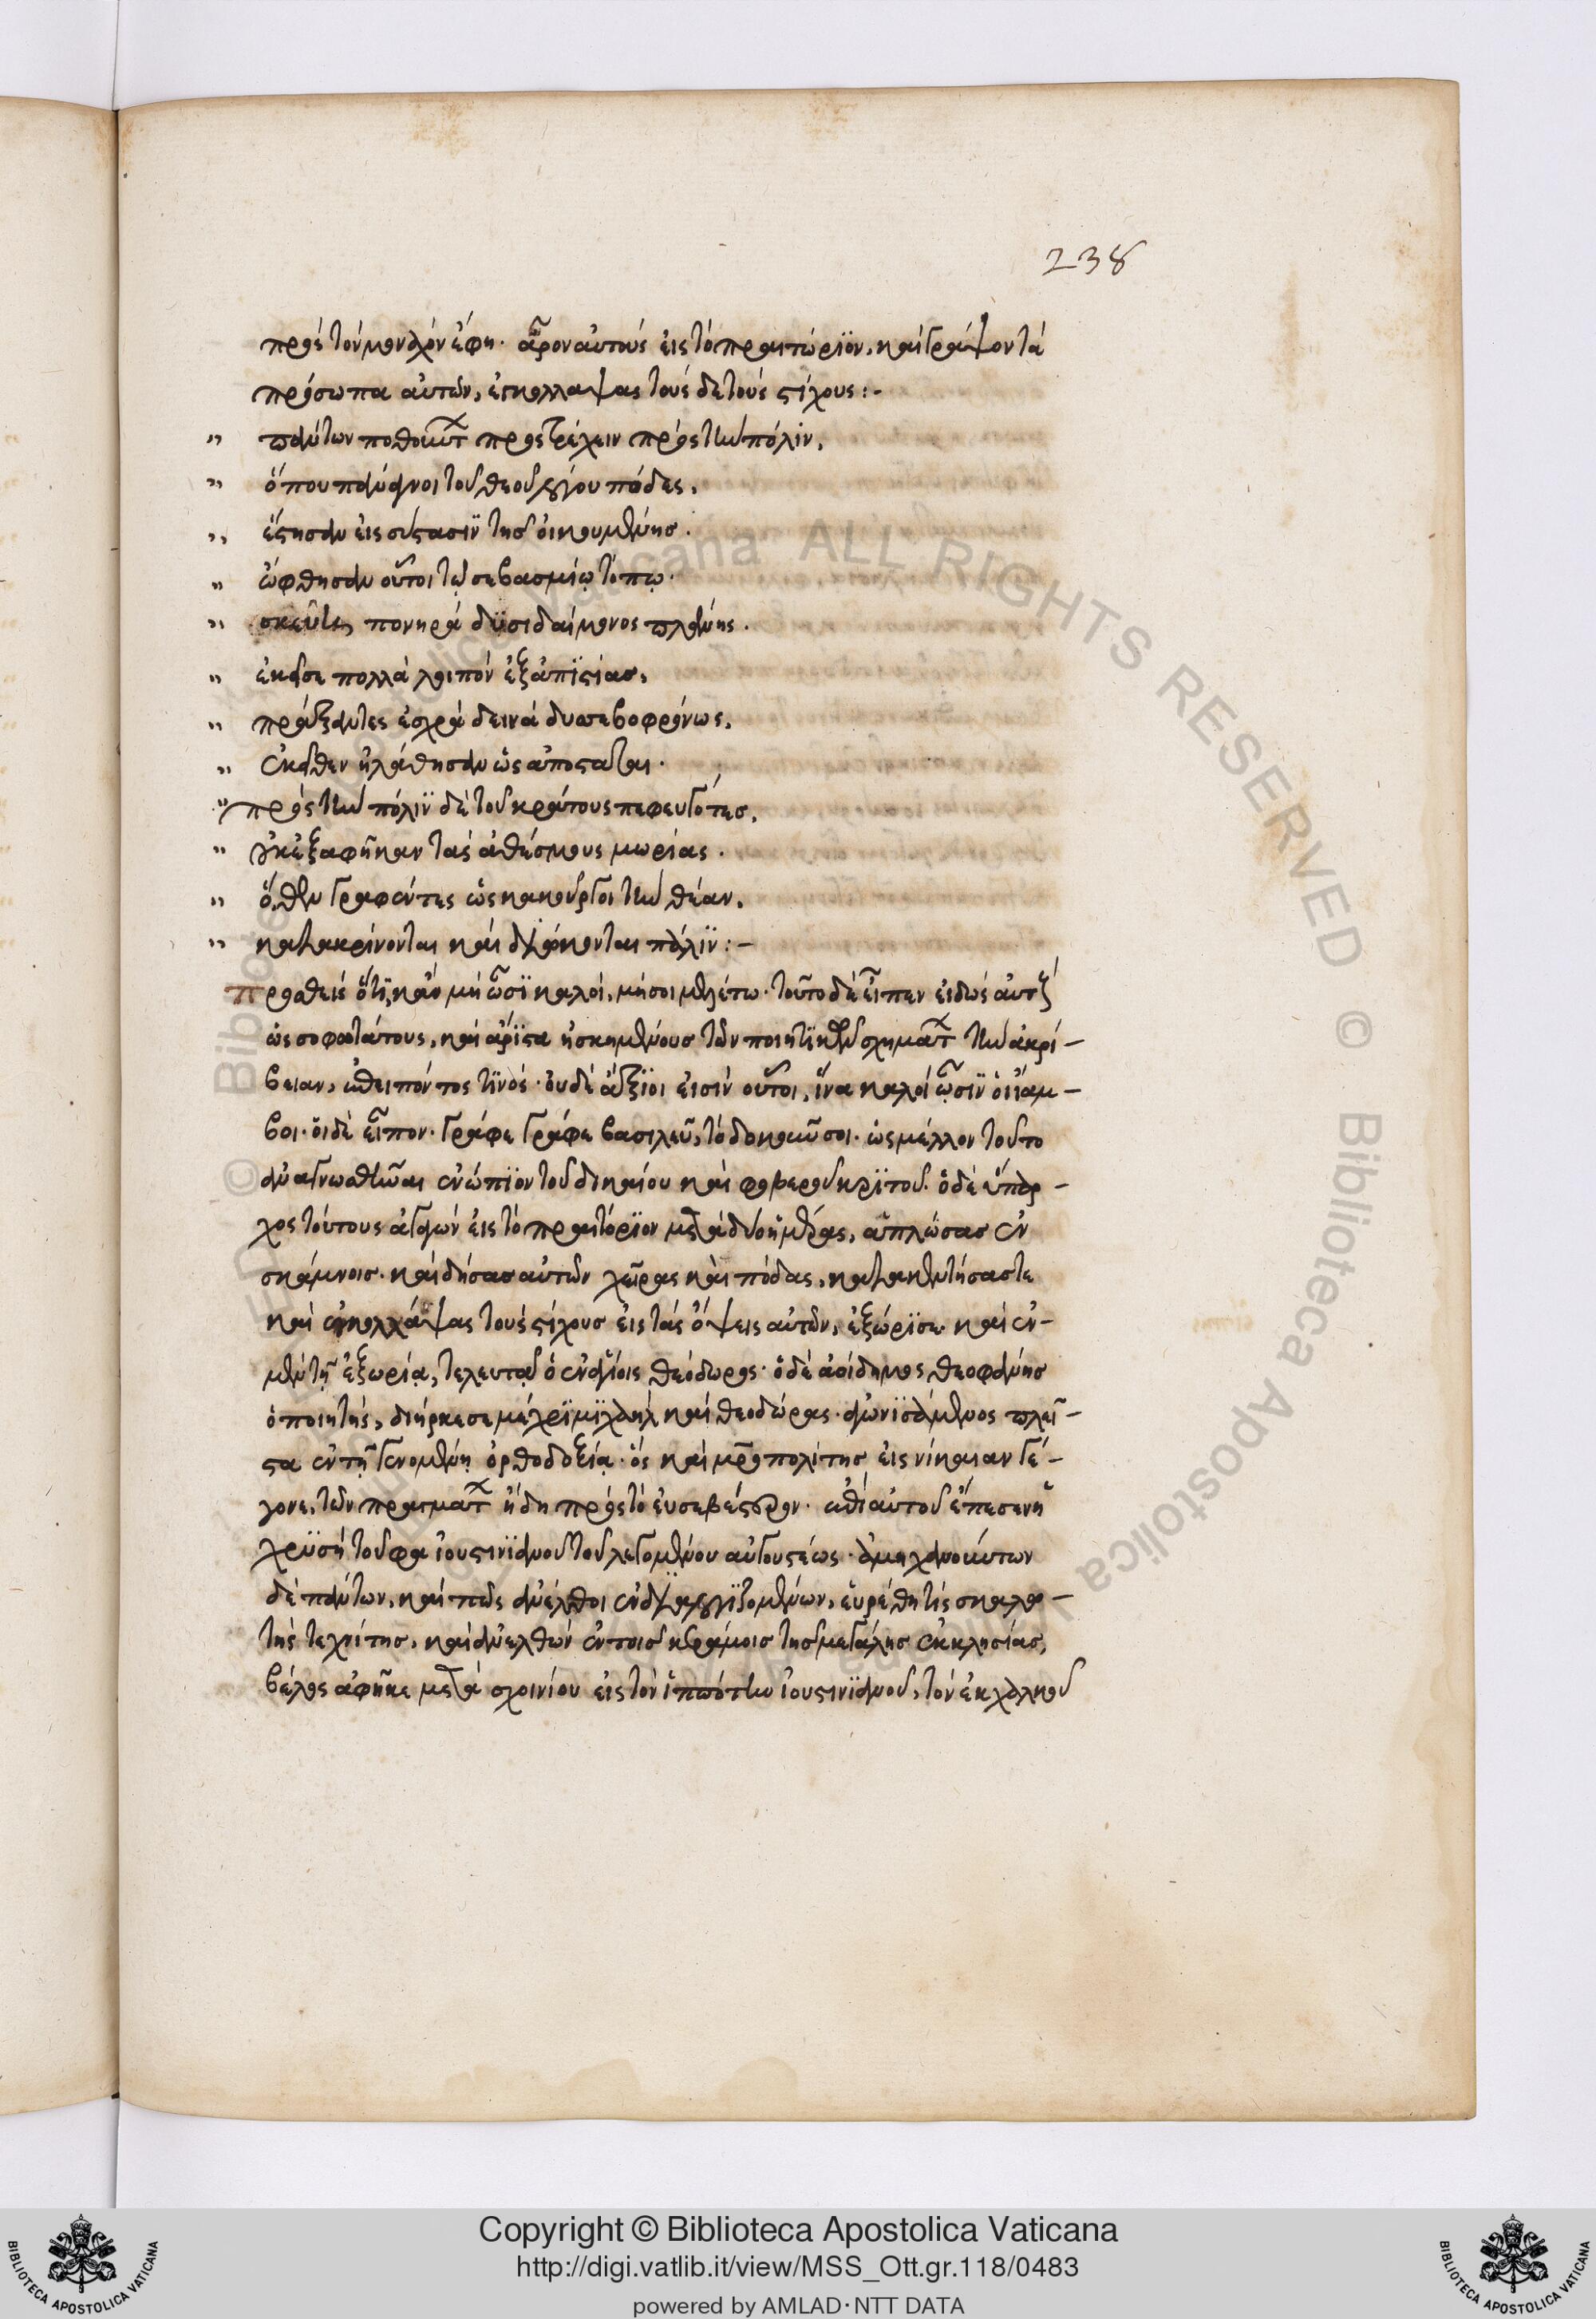 238
πρὸς τὸν μοναχὸν ἔφη· ἆρον αὐτοὺς εἰς τὸ πραιτώρϊον, καὶ γράψον τὰ
πρόσωπα αὐτῶν, ἐγκολλάψας τοὺς δε τοὺς στίχους:-
πάντων ποθούντων προστρέχειν πρὸς τὴν πόλιν,
ὅπου πάναγνοι τοῦ θεοῦ λόγου πόδες,
ἔστησαν εἰς σύστασϊν τῆς οἰκουμένης.
ὤφθησαν οὗτοι τῷ σεβασμίῳ τόπῳ.
σκεύη πονηρὰ δϋσιδαίμονος πλάνης.
ἐκεῖσε πολλὰ λοιπὸν ἐξ ἀπϊστίας,
πράξαντες ἐσχρὰ δεινὰ δυσεβοφρόνως,
ἐκεῖθεν ἠλάθησαν ὡς ἀποστάται.
πρὸς τὴν πόλιϊν δὲ τοῦ κράτους πεφευγότες,
οὐκ ἐξαφῆκαν τὰς ἀθέσμους μωρίας.
ὅθεν γραφέντες ὡς κακοῦργοι τὴν θέαν,
κατακρίνονται καὶ διώκονται πάλϊν:-
προσθεὶς ὅτϊ, κἂν μὴ ὦσϊ καλοὶ, μή σοι μελέτω· τοῦτο δὲ εἶπεν εἰδὼς αὐτοὺς
ὡς σοφωτάτους, καὶ ἄρϊστα ἠσκημένους τῶν ποιητϊκῶν σχημάτων τὴν ἀκρί-
βειαν, ὑπειπόντος τϊνός· οὐδὲ ἄξϊοι εἰσὶν οὗτοι, ἵνα καλοὶ ὦσϊν οἱ ἴαμ-
βοι· οἱ δὲ εἶπον· γράφε γράφε βασιλεῦ, τὸ δοκοῦν σοι· ὡς μέλλον τοῦτο
ἀναγνωσθῆναι ἐνώπϊον τοῦ δικαίου καὶ φοβεροῦ κρϊτοῦ. ὁ δὲ ὕπαρ-
χος τούτους ἀγαγὼν εἰς τὸ πραιτόρϊον μετὰ δύο ἡμέρας, ἁπλώσας ἐν
σκάμνοις· καὶ δήσας αὐτῶν χεῖρας καὶ πόδας, κατακεντήσας τε
καὶ ἐγκολλάψας τοὺς στίχους εἰς τὰς ὄψεις αὐτῶν, ἐξώρϊσε· καὶ ἐν-
μὲν τῇ ἐξωρίᾳ, τελευτᾷ ὁ ἐν ἁγίοις θεόδωρος· ὁ δὲ ἀοίδημος θεοφάνης
ὁ ποιητὴς, διήρκεσε μέχρϊ μϊχαὴλ καὶ θεοδώρας· ἀγωνϊσάμενος πλεῖ-
στα ἐν τῇ γενομένῃ ὀρθοδοξίᾳ· ὃς καὶ μητροπολίτης εἰς νίκαιαν γέ-
γονε, τῶν πραγμάτων ἤδη πρὸς τὸ εὐσεβέστερον· ἐπὶ αὐτοῦ ἔπεσεν ἡ
χρϋσῆ τοῦφα ἰουστινϊανοῦ τοῦ λεγομένου αὐγουστέως· ἀμηχανούντων
δὲ πάντων, καὶ πῶς ἀνέλθοι ἐν διαλογϊζομένων, εὑρέθη τὶς σκαλω-
τὴς τεχνίτης, καὶ ἀνελθὼν ἐν τοῖς κεράμοις τῆς μεγάλης ἐκκλησίας,
βέλος ἀφῆκε μετὰ σχοινίου εἰς τὸν ἱππότην ἰουστινϊανοῦ, τὸν ἐκ χαλκοῦ
Copyright © Biblioteca Apostolica Vaticana
http://digi.vatlib.it/view/MSS_Ott.gr.118/0483
powered by AMLAD·NTT DATA